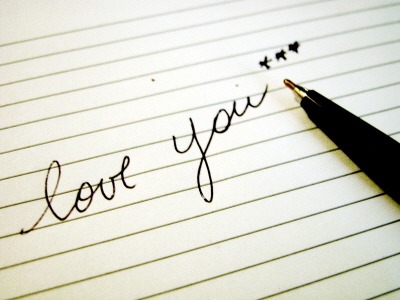 love you***